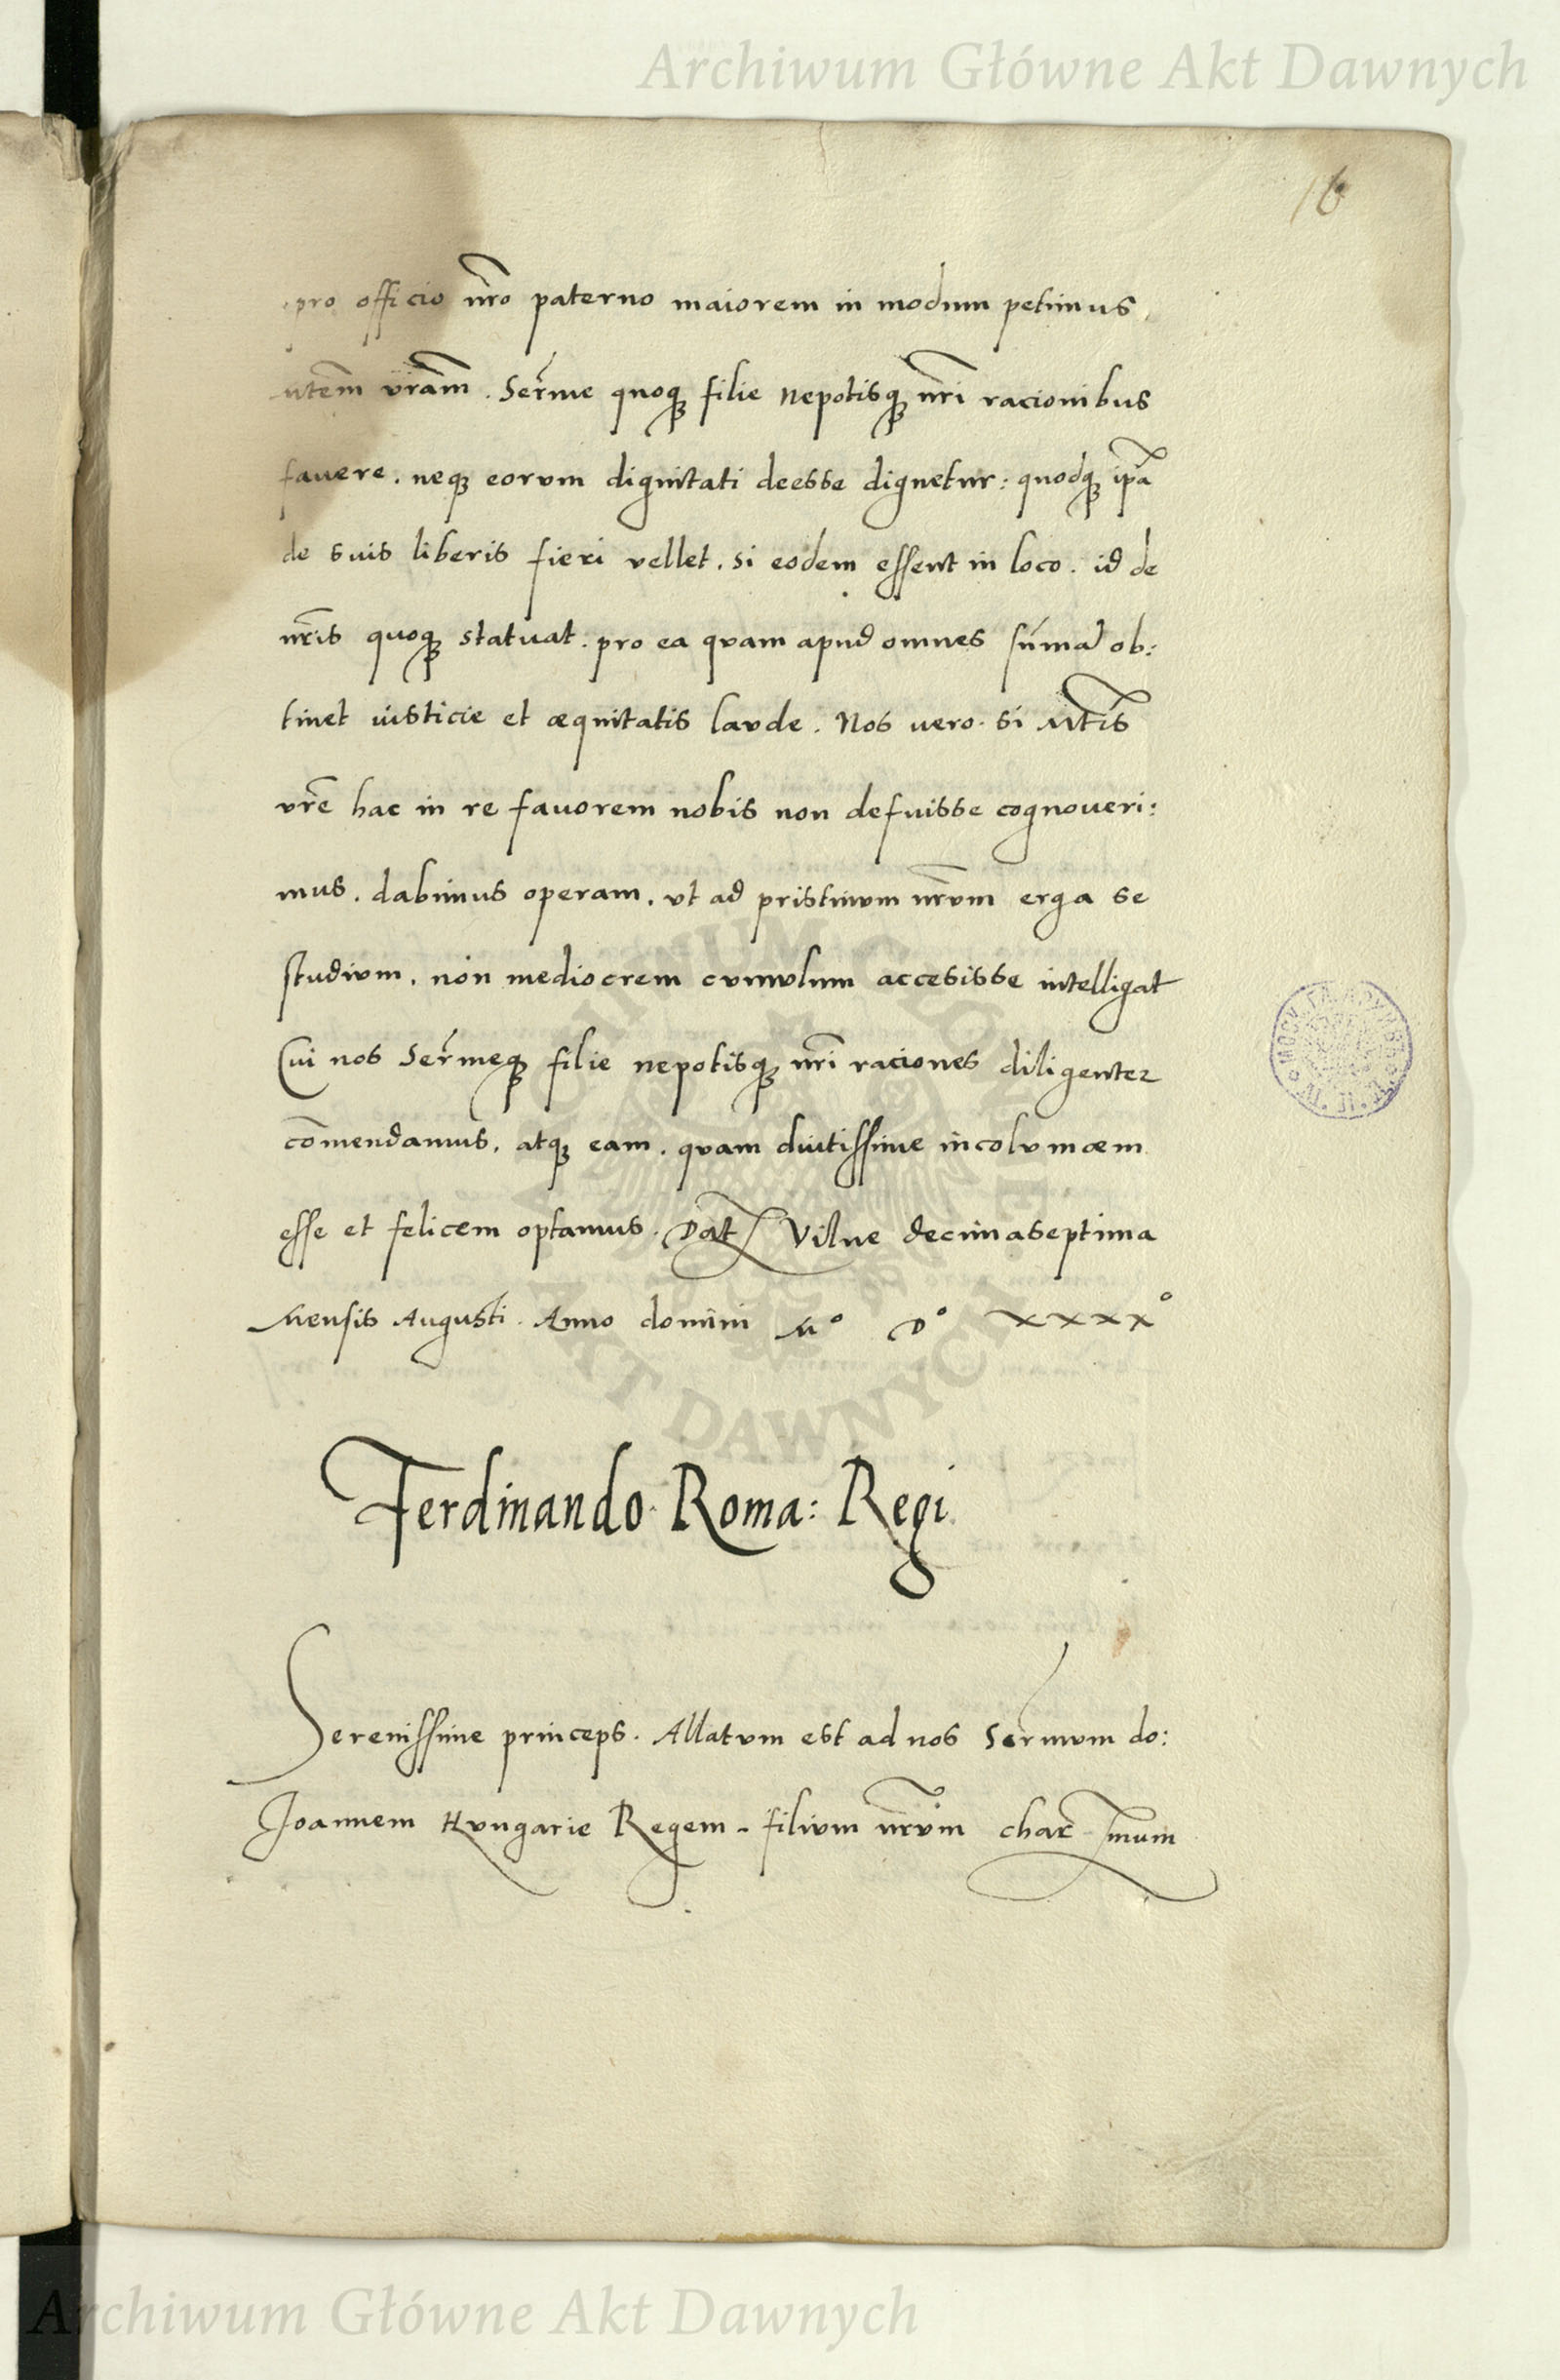 Archiwum Główne Akt Dawnych
16
pro officio nr̃o paterno maiorem in modum petimus
Mtem vram̃. Serm̃e quoq₃ filie nepotisq₃ nr̃i racionibus
favere. neq₃ eorvm dignitati deesse dignetur: quodq₃ ip̃a
de suis liberis fieri vellet. si eodem essent in loco. id de
nr̃is quoq₃ statuat. pro ea quam apud omnes sum̃a ob:
tinet iusticie et æquitatis laude. Nos uero. si Mtis̃
vr̃e hac in re fauorem nobis non defuisse cognoueri:
mus. dabimus operam. vt ad pristinvm nr̃vm erga se
studivm. non mediocrem cvmvlum accesisse intelligat
Cui nos Serm̃eq₃ filie nepotisq₃ nr̃i raciones diligenter
com̃endamus. atq₃ eam. quam diutissime incolvmæm
esse et felicem optamus. Dat Vilne decimaseptima
Mensis Augusti. Anno domini Mº Dº XXXXº
Ferdinando Roma: Regi
Serenissime princeps. Allatvm est ad nos Sermvm do:
Joannem Hvngarie Regem filivm nr̃vm char̃ smum
ARCHIWUM GŁÓWNE
AKT DAWNYCH
Archiwum Główne Akt Dawnych